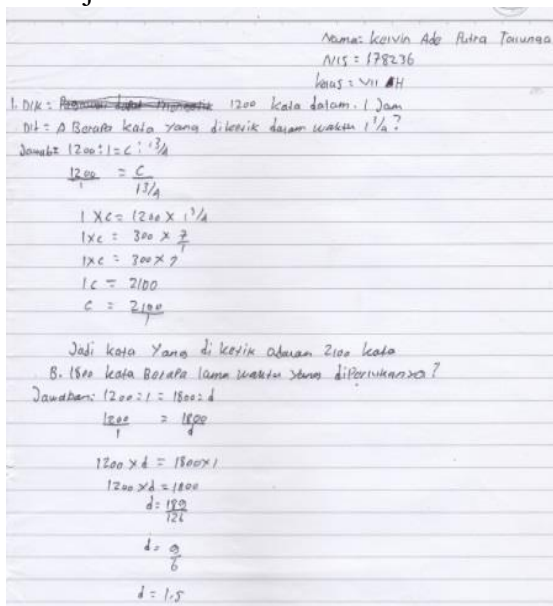 Nama: Kelvin Ade Putra Tarunga
NIS = 178236
Kelas = VII H
1. Dik = 1200 kata dalam 1 Jam
Dit = A Berapa kata yang diketik dalam waktu 1 3/4?
Jawab= 1200 : 1 = C : 1 3/4
1200/1 = C/1 3/4
1 x c = 1200 x 1 3/4
1xc = 300 x 7/1
1xc = 300 x 7
1c = 2100
c = 2100/1
Jadi kata yang di ketik adalah 2100 kata
B. 1800 kata Berapa lama waktu yang diperlukannya?
Jawaban: 1200 : 1 = 1800 : d
1200/1 = 1800/d
1200 x d = 1800x1
1200 xd = 1800
d= 180/126
d= 9/6
d = 1.5